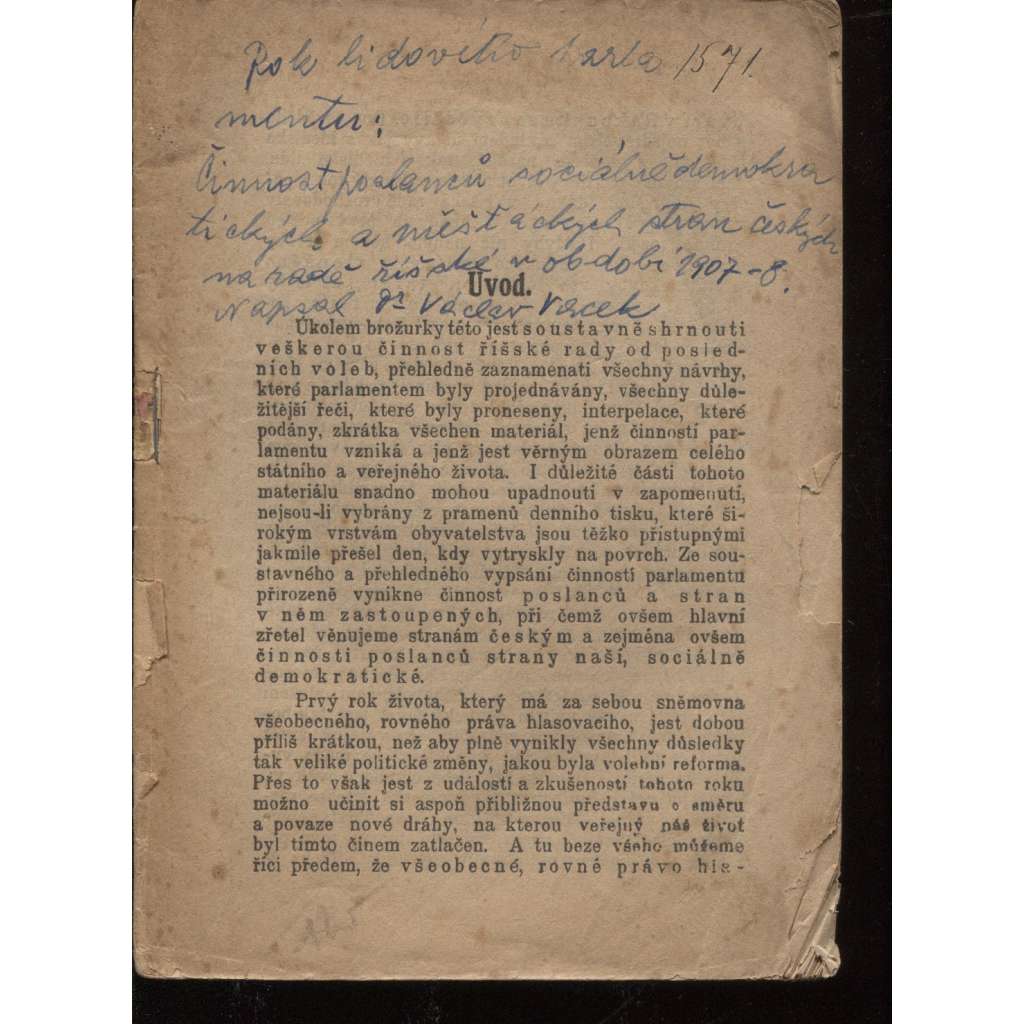 Rok lidového parla 1571.
mentu:
Činnost poslanců sociálně demokra
tických a měšťáckých stran českých
na radě říšské v období 1907-8.
Napsal Dr Václav Vacek
Úvod.
Úkolem brožurky této jest soustavně shrnouti
veškerou činnost říšské rady od posled-
ních voleb, přehledně zaznamenati všechny návrhy,
které parlamentem byly projednávány, všechny důle-
žitější řeči, které byly proneseny, interpelace, které
podány, zkrátka všechen materiál, jenž činností par-
lamentu vzniká a jenž jest věrným obrazem celého
státního a veřejného života. I důležité části tohoto
materiálu snadno mohou upadnouti v zapomenutí,
nejsou-li vybrány z pramenů denního tisku, které ši-
rokým vrstvám obyvatelstva jsou těžko přístupnými
jakmile přešel den, kdy vytryskly na povrch. Ze sou-
stavného a přehledného vypsání činností parlamentu
přirozeně vynikne činnost poslanců a stran
v něm zastoupených, při čemž ovšem hlavní
zřetel věnujeme stranám českým a zejména ovšem
činnosti poslanců strany naší, sociálně
demokratické.
Prvý rok života, který má za sebou sněmovna
všeobecného, rovného práva hlasovacího, jest dobou
příliš krátkou, než aby plně vynikly všechny důsledky
tak veliké politické změny, jakou byla volební reforma.
Přes to však jest z událostí a zkušeností tohoto roku
možno učinit si aspoň přibližnou představu o směru
a povaze nové dráhy, na kterou veřejný náš život
byl tímto činem zatlačen. A tu beze všeho můžeme
říci předem, že všeobecné, rovné právo hla-